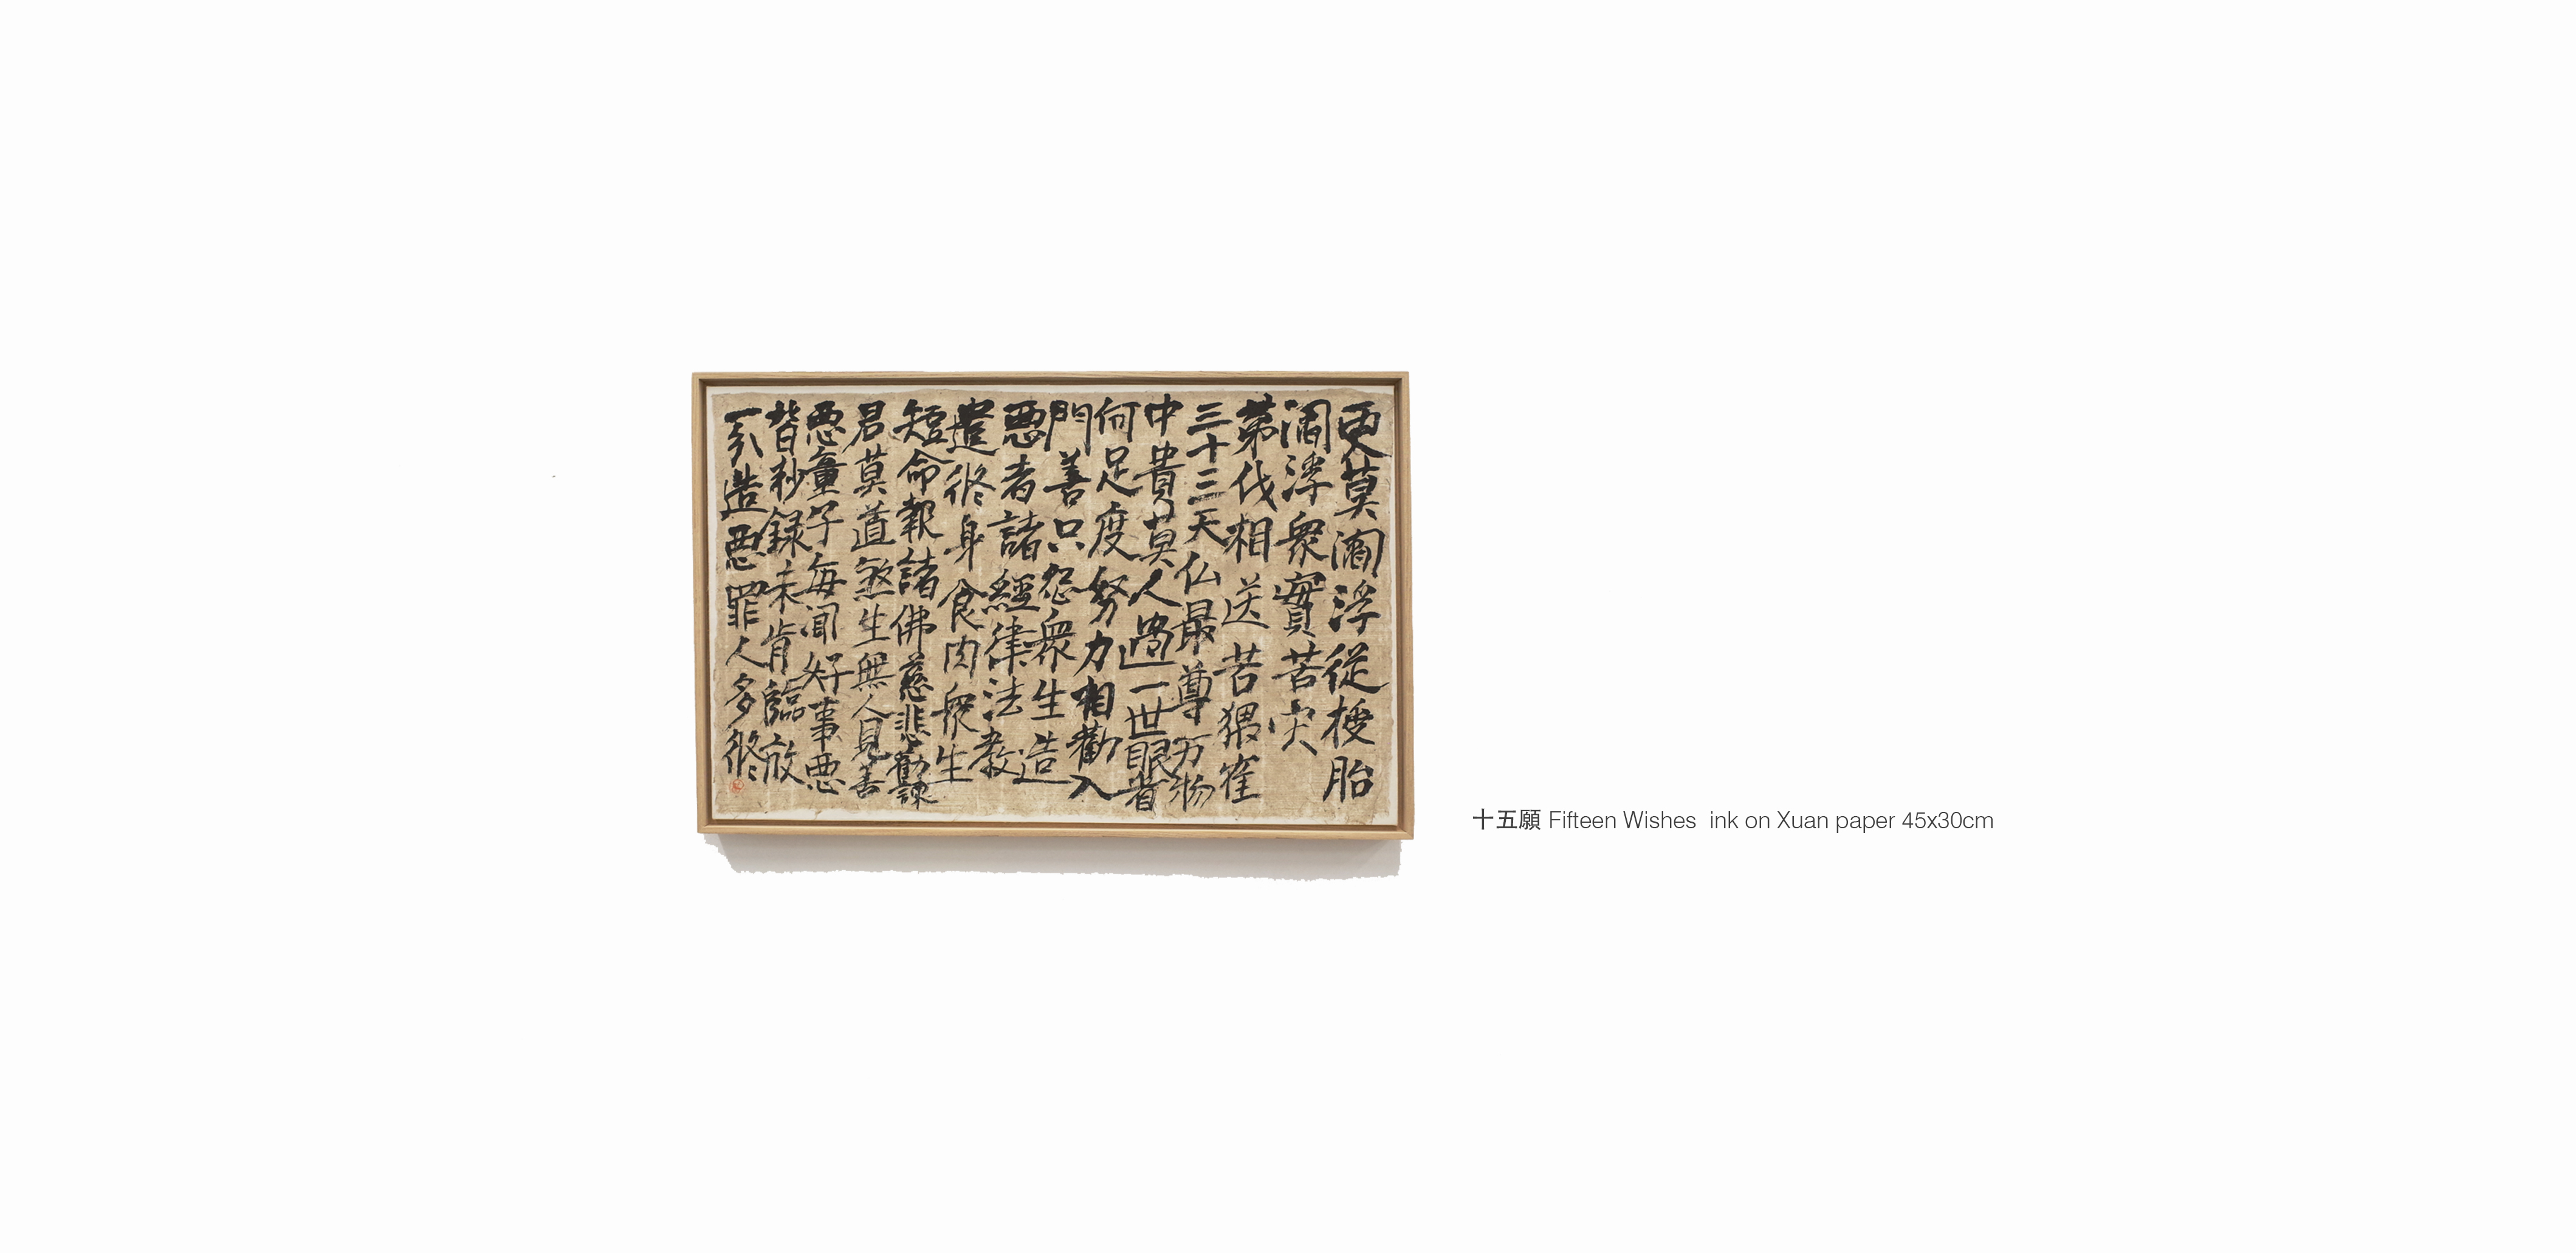 更莫閻浮從梭胎
閻浮衆實苦灾
第伐相送苦猥隺
三十三天仏最尊万物
中貴莫人過一世眼者
何足度努力相勸入
門善只怨衆生造
悪者諸經律法教
遣修身食肉衆生
短命報諸佛慈悲勸諫
君莫道煞生無人見善
悪童子每聞好事悪
皆抄録未肯臨放
一引造悪罪人多修
十五願 Fifteen Wishes ink on Xuan paper 45x30cm